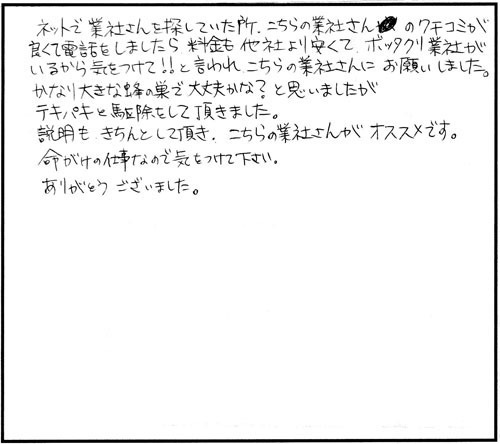 ネットで業社さんを探していた所、こちらの業社さんのクチコミが
良くて電話をしましたら料金も他社より安くて、ボッタクリ業社が
いるから気をつけて!!と言われこちらの業社さんにお願いしました。
かなり大きな蜂の巣で大丈夫かな?と思いましたが
テキパキと駆除をして頂きました。
説明もきちんとして頂き、こちらの業社さんがオススメです。
命がけの仕事なので気をつけて下さい。
ありがとうございました。